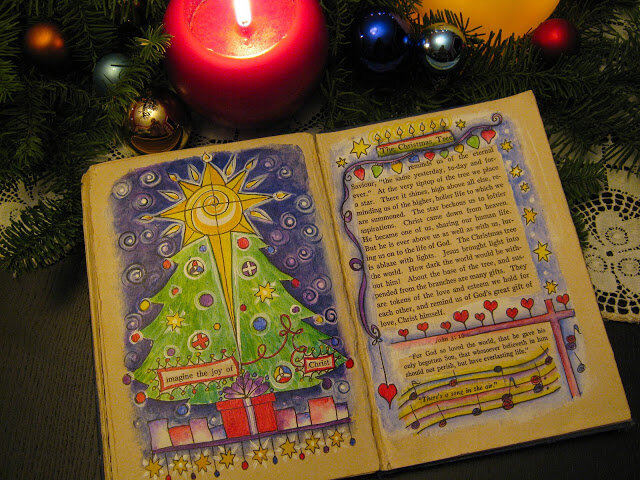 imagine the joy of
Christ
The Christmas Tree
reminds us of the eternal
Saviour, "the same yesterday, to-day and for-
ever." At the very tiptop of the tree we place
a star. There it shines, high above all else, re-
minding us of the higher, holier life to which we
are summoned. The star beckons us to loftier
aspirations. Christ came down from heaven.
He became one of us, sharing our human life.
But he is ever above us as well as with us, bur-
ing us on to the life of God. The Christmas tree
is ablaze with lights. Jesus brought light into
the world. How dark the world would be with-
out him! About the base of the tree, and sus-
pended from the branches are many gifts. They
are tokens of the love and esteem we hold for
each other, and remind us of God's great gift of
love, Christ himself.
John 3:
"For God so loved the world, that he gave his
only begotten Son, that whosoever believeth in him
should not perish, but have everlasting life."
"There's a song in the air."